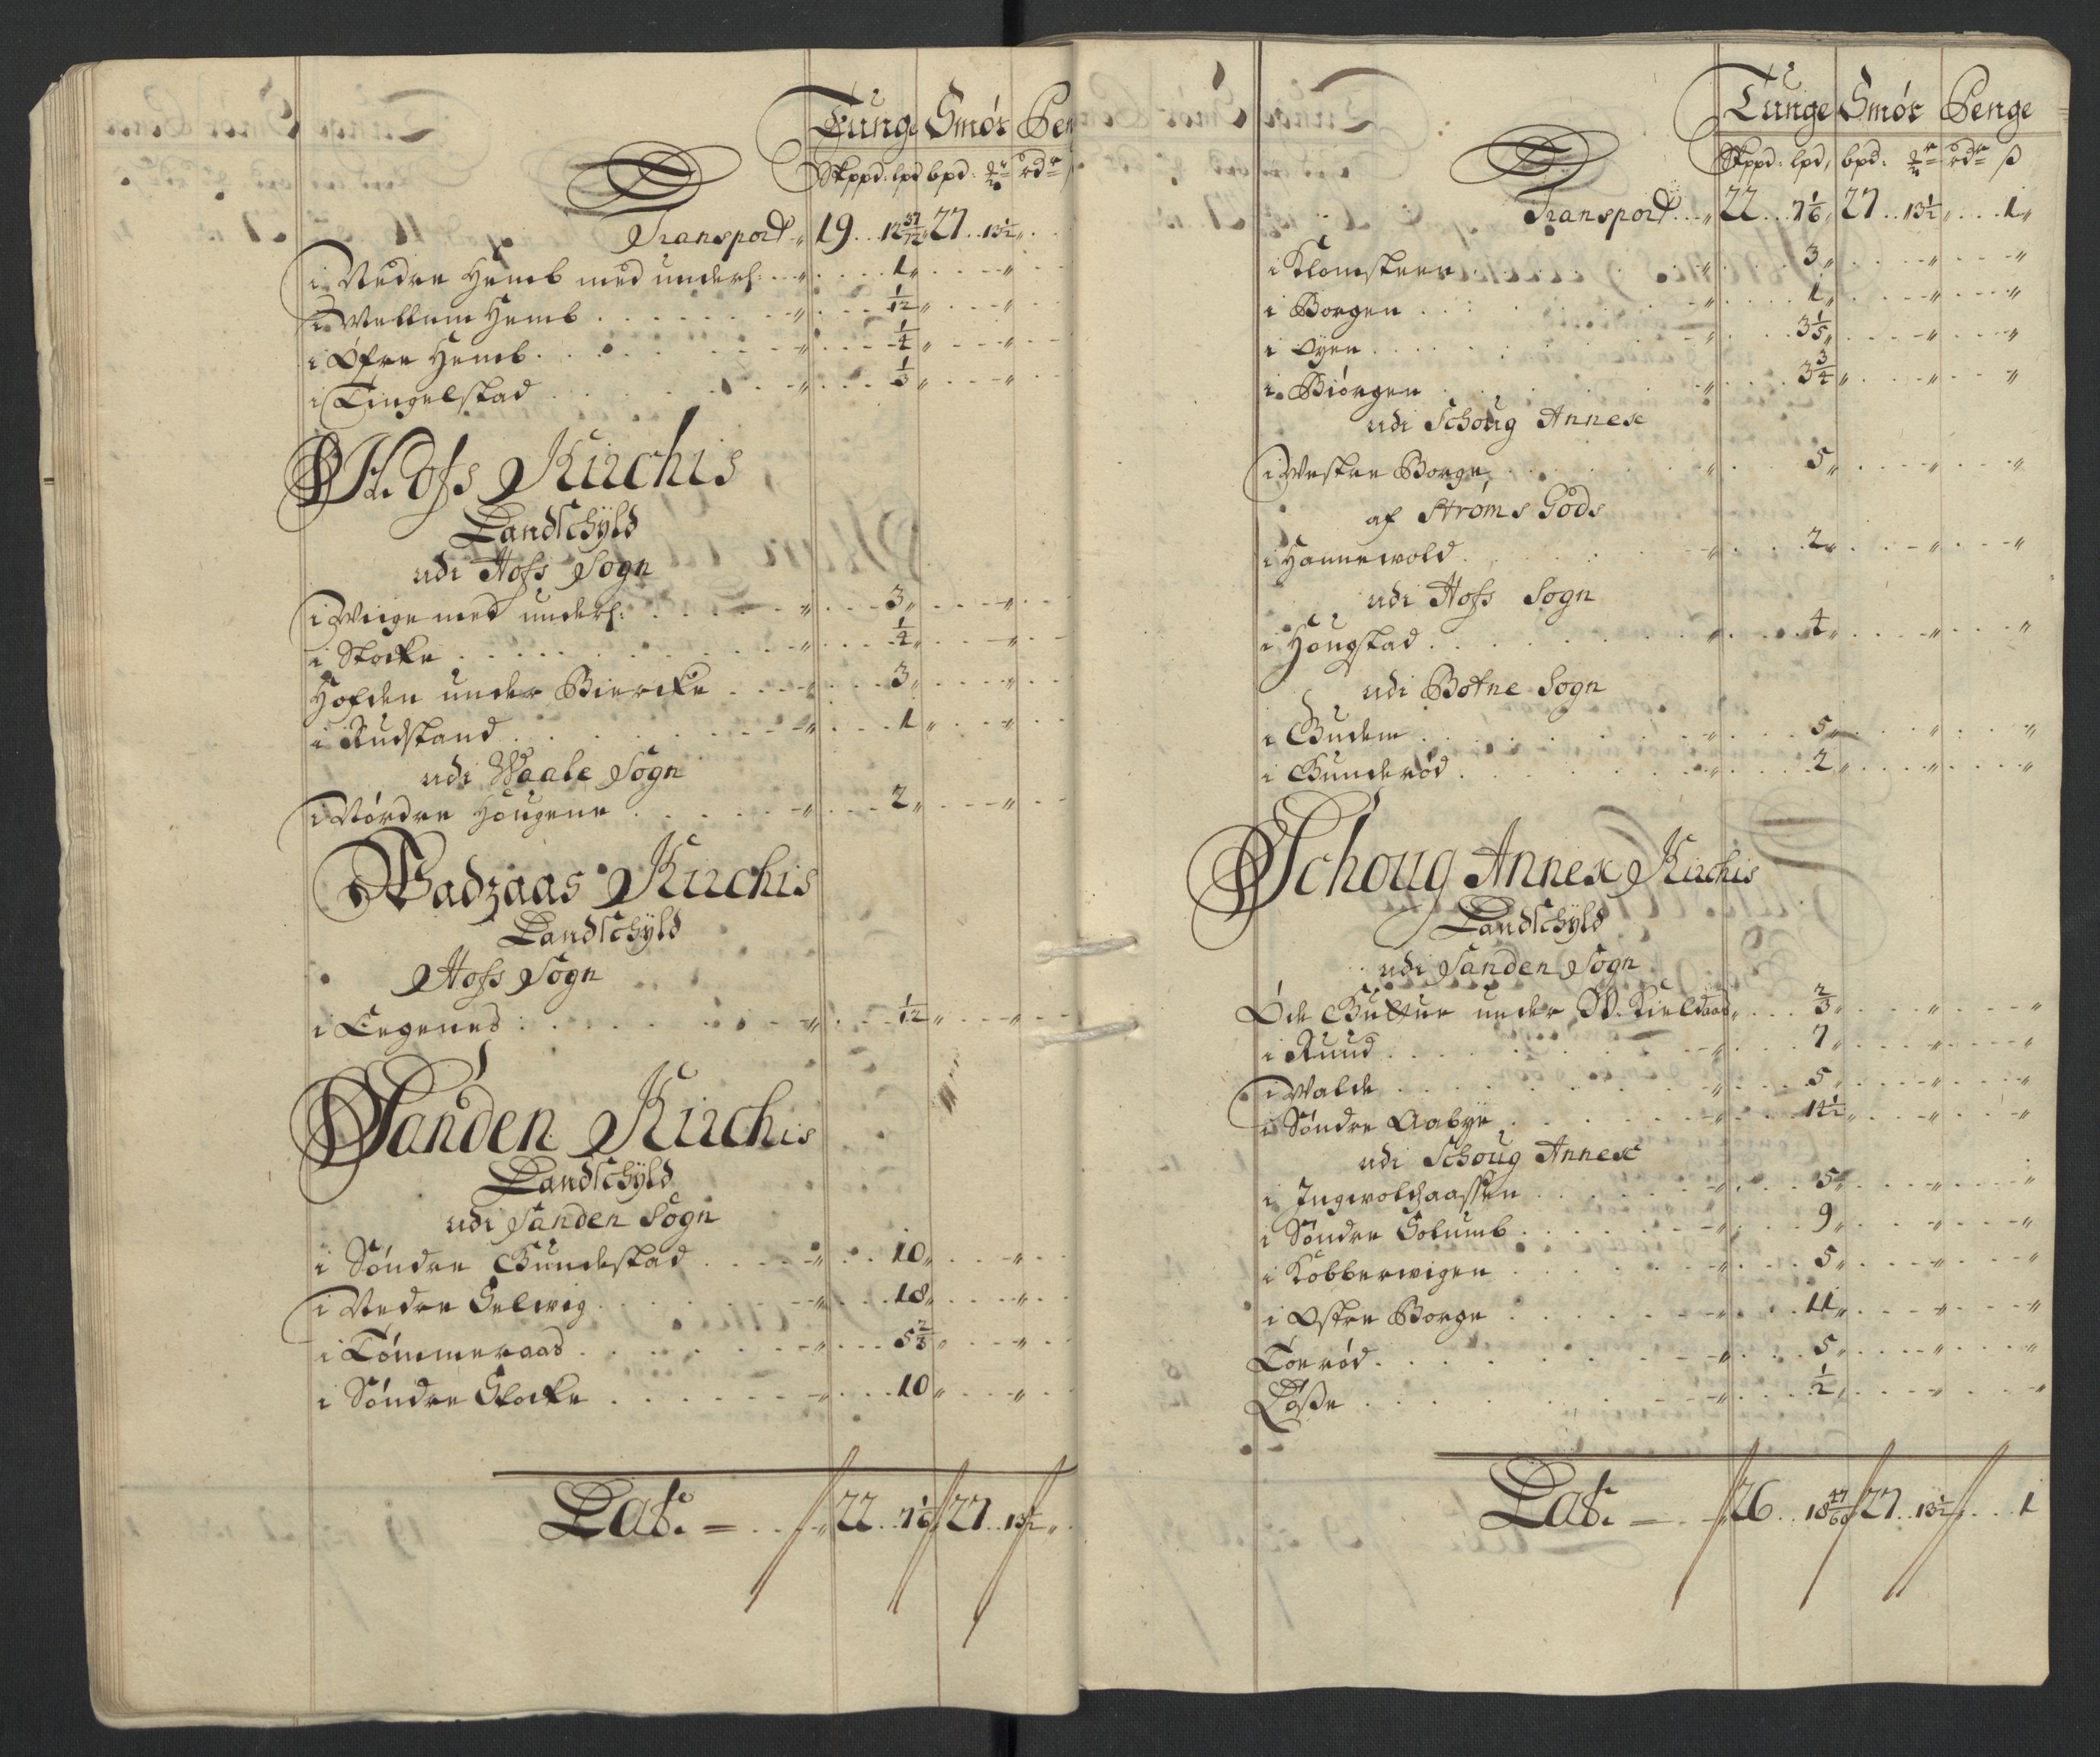 Tunge Smór Pen
Skppd: lpd bpd: rdr
Transport 19 12 37/72 27 13½
i Nedre Hemb med underl: 1
i Mellum Hemb 1/12
i Øfre Hemb 1/4
i Tingelstad 1/3
Hofs Kirchis
Landschÿld
udi Hofs Sogn
i Wiige med underl: 3
i Stocke 1/4
Hofden under Biercke 3
i Rudstand 1
udi Waale Sogn
i Nórdre Hougene 2
Wadzaas Kirchis
Landschÿld
Hofs Sogn
i Eegenes 1/12
Sanden Kirchis
Landschÿld
udi Sanden Sogn
i Sóndre Gundestad 10
i Nedre Selwig 18
i Tómmeraas 5 2/3
i Sóndre Stocke 10
Lat. 22 7 1/6 27 13½
Tunge Smór Penge
Skppd: lpd, bpd: rdr ß
Transport 22 7 1/6 27 13½ 1
i Klomsteen 3
i Borgen 1
i Oyen 3 1/5
i Biórgen 3 3/4
udi Schoug Annex
i Westre Borge 5
af Stróms Gods
i Hannewold 2
udi Hofs Sogn
i Hougstad 4
udi Botne Sogn
i Gudem 5
i Gunderód 2
Schoug Annex Kirchis
Landschÿld
udi Sanden Sogn
Óde under W. Kieldaas 2/3
i Ruud 7
i Walde 5
i Sóndre Aabye 14½
udi Schoug Annex
i Ingwoldsaassen 5
i Sóndre Solumb 9
i Kobberwigen 5
i Ostre Borge 11
Torród 5
1/2
Lat. 26 18 47/60 27 13½ 1